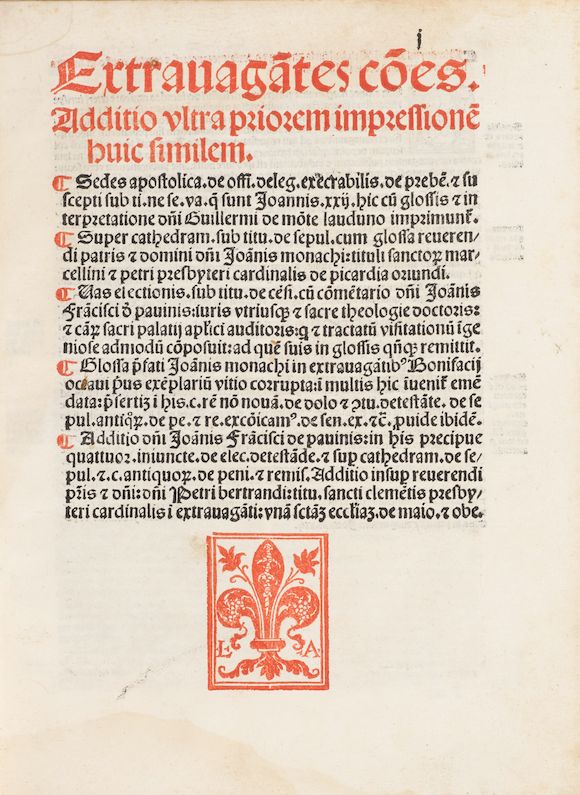 i
Extrauagãtes cões.
Additio vltra priorem impressionẽ
huic similem.
¶ Sedes apostolica. de offi. deleg. execrabilis. de prebẽ. ⁊ su
scepti sub ti. ne se. va. q̃ sunt Joannis. xxij. hic cũ glossis ⁊ in
terpretatione dñi Guillermi de mõte lauduno imprimunẽ.
¶ Super cathedram. sub titu. de sepul. cum glossa reueren-
di patris ⁊ domini dñi Joãnis monachi: tituli sanctoꝝ mar-
cellini ⁊ petri presbyteri cardinalis de picardia oriundi.
¶ Uas electionis. sub titu. de cẽsi. cũ cõmẽtario dñi Joãnis
Frãcisci ð pauinis: iuris vtriusqꝫ ⁊ sacre theologie doctoris:
⁊ cãꝝ sacri palatij apl̃ici auditoris: q̃ ⁊ tractatũ visitationũ ĩge
niose admodũ cõposuit: ad quẽ suis in glossis qñqꝫ remittit.
¶ Glossa p̃fati Joãnis monachi in extrauagãtibꝰ Bonifacij
octaui pͥus exẽplariũ vitio corrupta: ĩ multis hic ĩueniẽ emẽ
data: p̃sertiʒ ĩ his. c. rẽ nõ nouã. de dolo ⁊ ꝯtu. detestãte. de se
pul. antiqͦꝝ. de pe. ⁊ re. excõicamꝰ. de sen. ex. ⁊ c̃. ꝓuide ibidẽ.
¶ Additio dñi Joãnis Frãcisci de pauinis: in his precipue
quattuor. iniuncte. de elec. detestãde. ⁊ sup cathedram. de se-
pul. ⁊. c. antiquoꝝ. de peni. ⁊ remis. Additio insup reuerendi
pr̃is ⁊ dñi: dñi Petri bertrandi: titu. sancti clemẽtis presby-
teri cardinalis ĩ extrauagãti: vnã sctãʒ eccl̃iaʒ. de maio. ⁊ obe.
L A